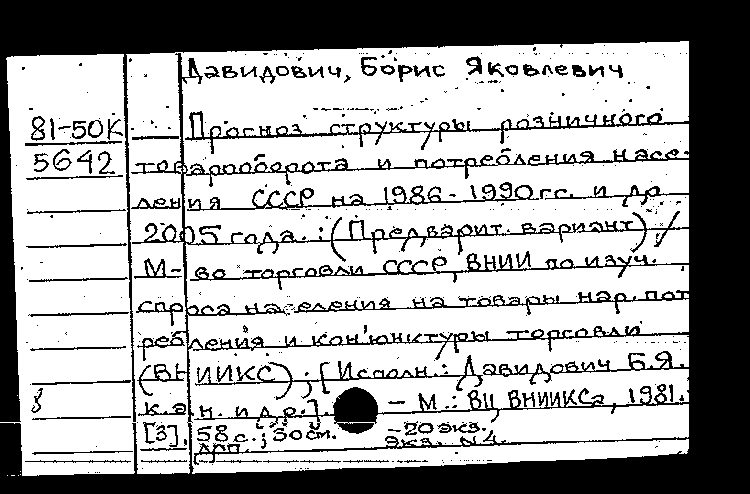 Давидович, Борис Яковлевич
81-50К
5642
Прогноз структуры розничного
товарооборота и потребления насе-
ления СССР на 1986-1990 гг. и до
2005 года. : (Предварит. вариант) /
М-во торговли СССР, ВНИИ по изуч.
спроса населения на товары нар. пот
ребления и конъюнктуры торговли
(ВНИИКС) ; [Исполн.: Давидович Б.Я.
к.э.н. и др.]. - М.: ВЦ ВНИИКСа, 1981.
8
[3], 58 с.; 30 см. -20 экз.
Экз. N4.